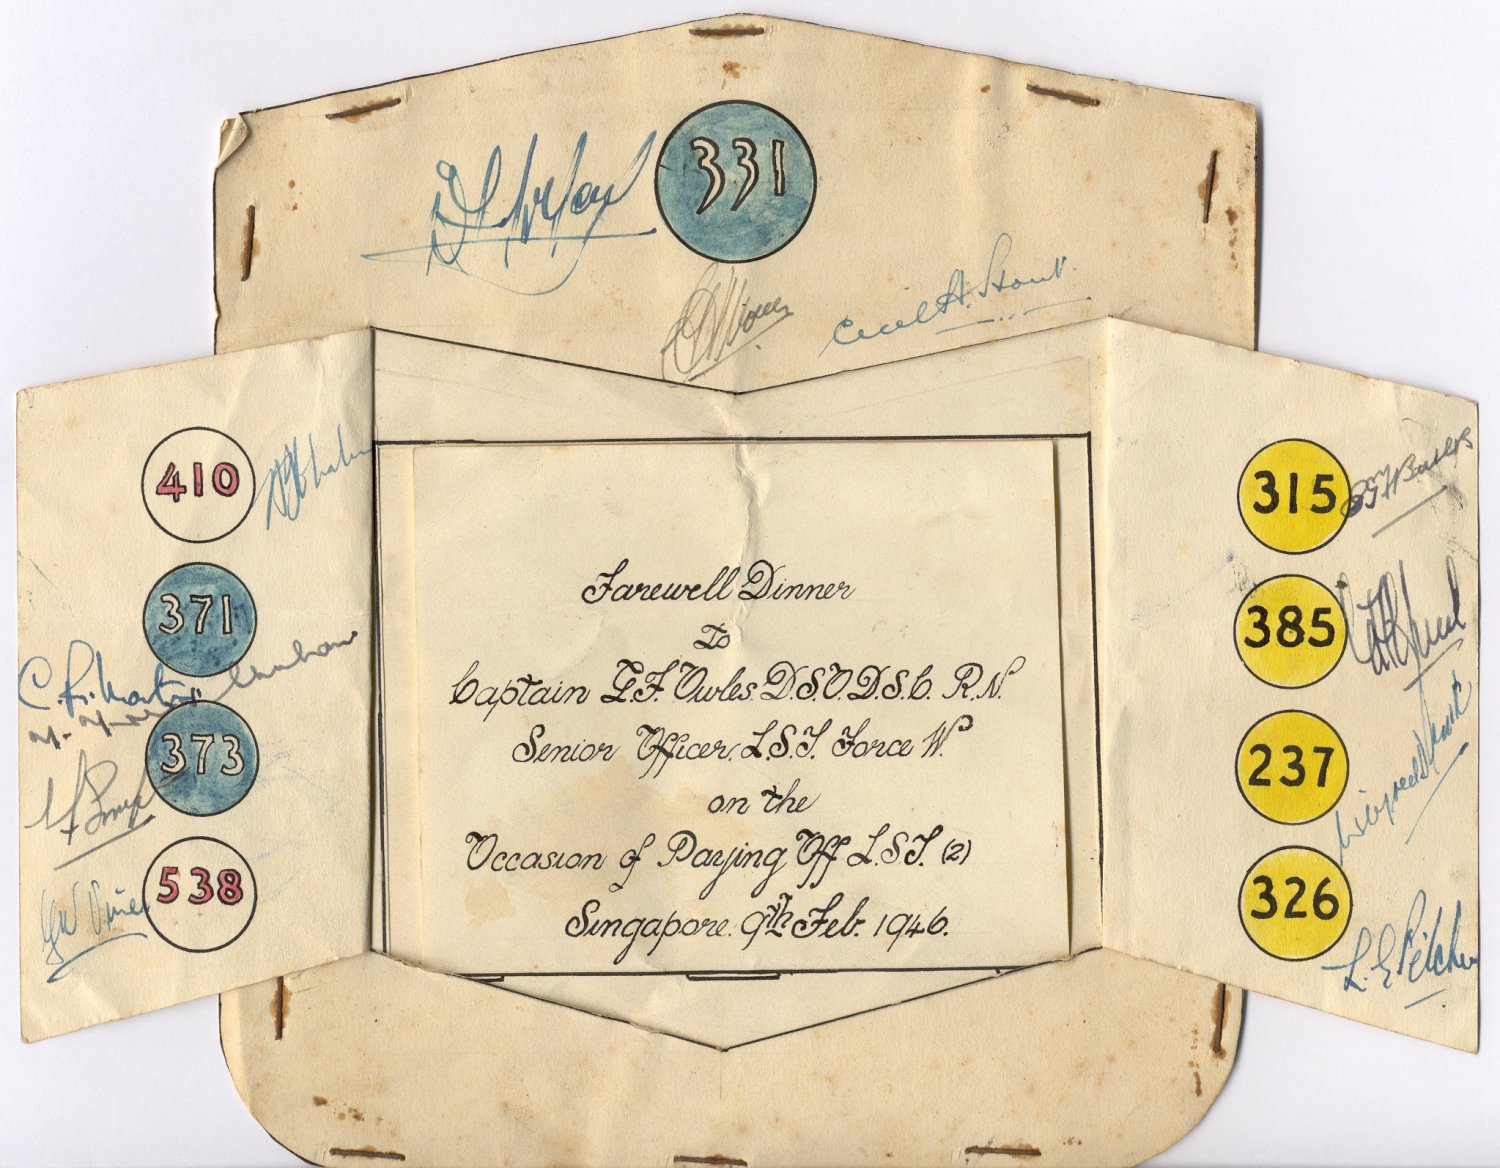 331
Cecil H. Stout.
410
371
373
538
Farewell Dinner
To
Captain G.F. Owles. D.S.O. D.S.C. R.N.
Senior Officer. L.S.T. Force W.
on the
Occasion of Paying Off L.S.T. (2)
Singapore. 9th Feb. 1946.
315
385
237
326
L. E. Pilcher